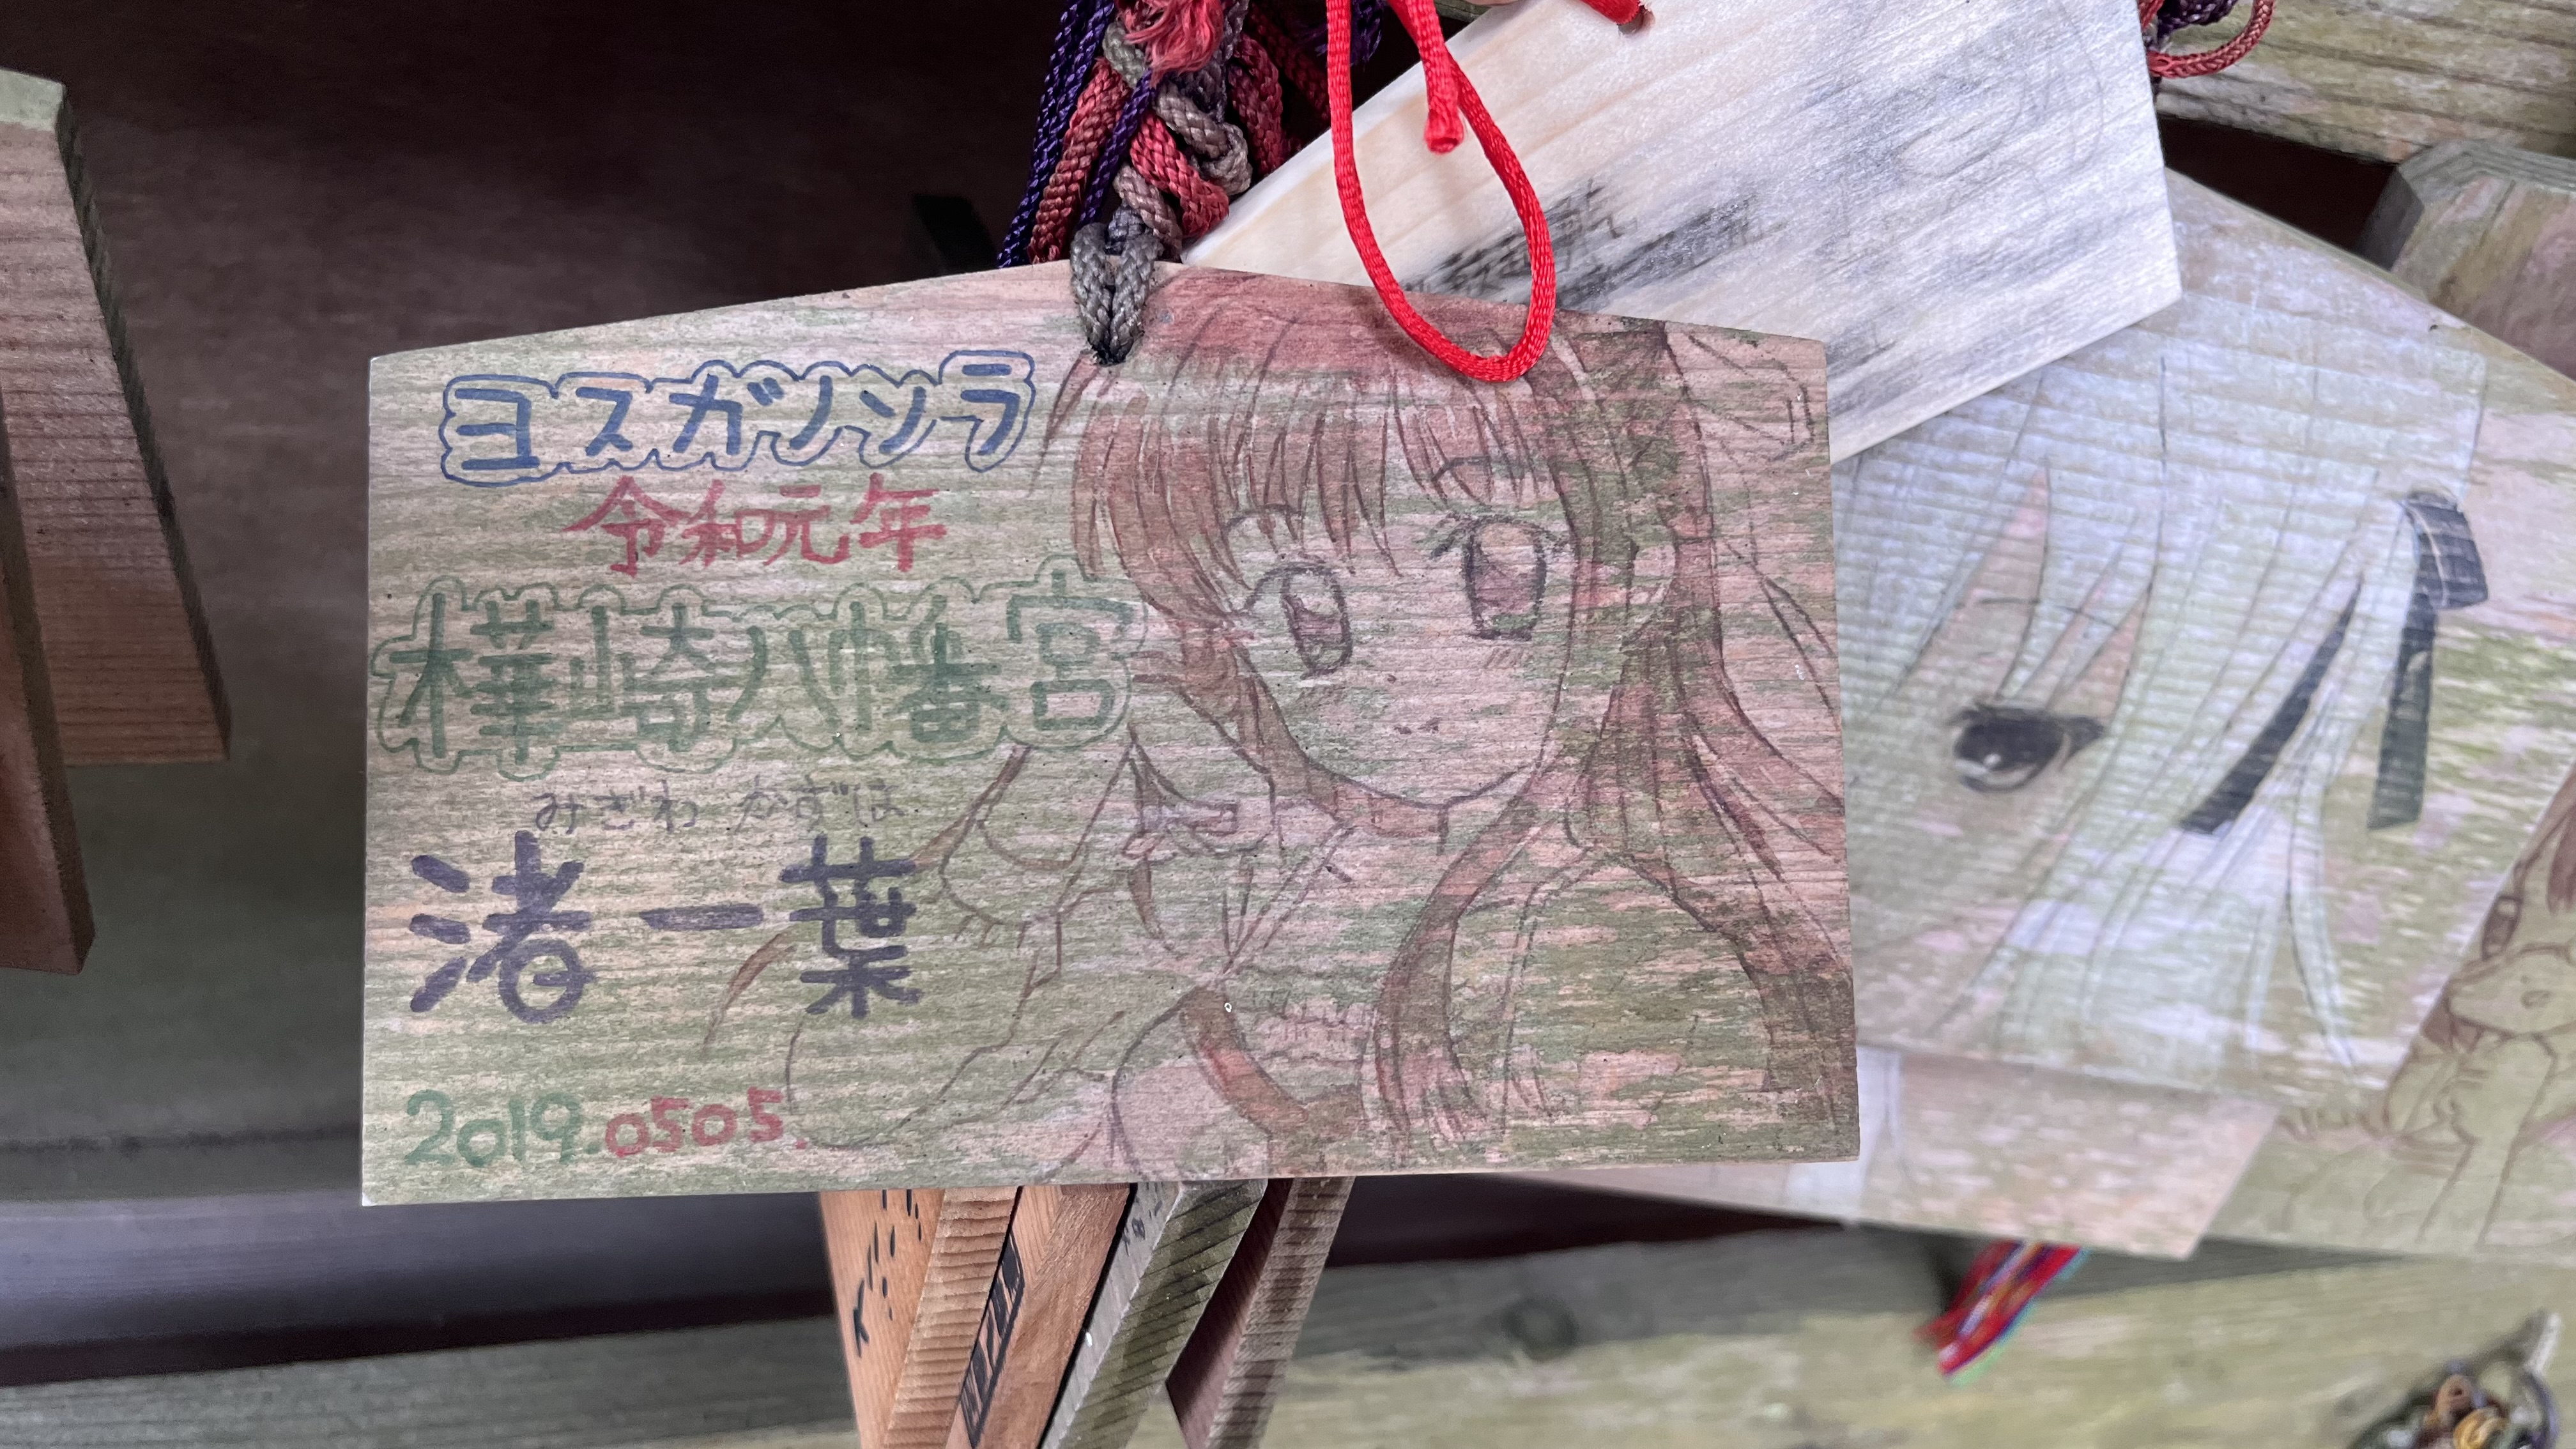 ヨスガノソラ
令和元年
樺崎八幡宮
みぎわ かずは
渚一葉
2019.0505.